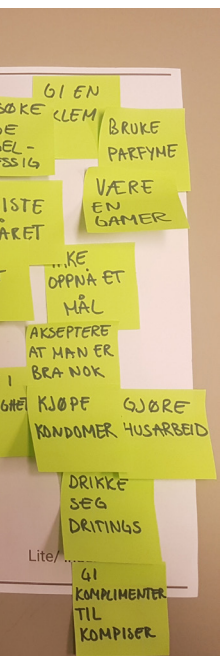 GI EN
KLEM
BRUKE
PARFYME
VÆRE
EN
GAMER
OPPNÅ ET
MÅL
AKSEPTERE
AT MAN ER
BRA NOK
KJØPE
KONDOMER
GJØRE
HUSARBEID
DRIKKE
SEG
DRITINGS
Lite/
GI
KOMPLIMENTER
TIL
KOMPISER